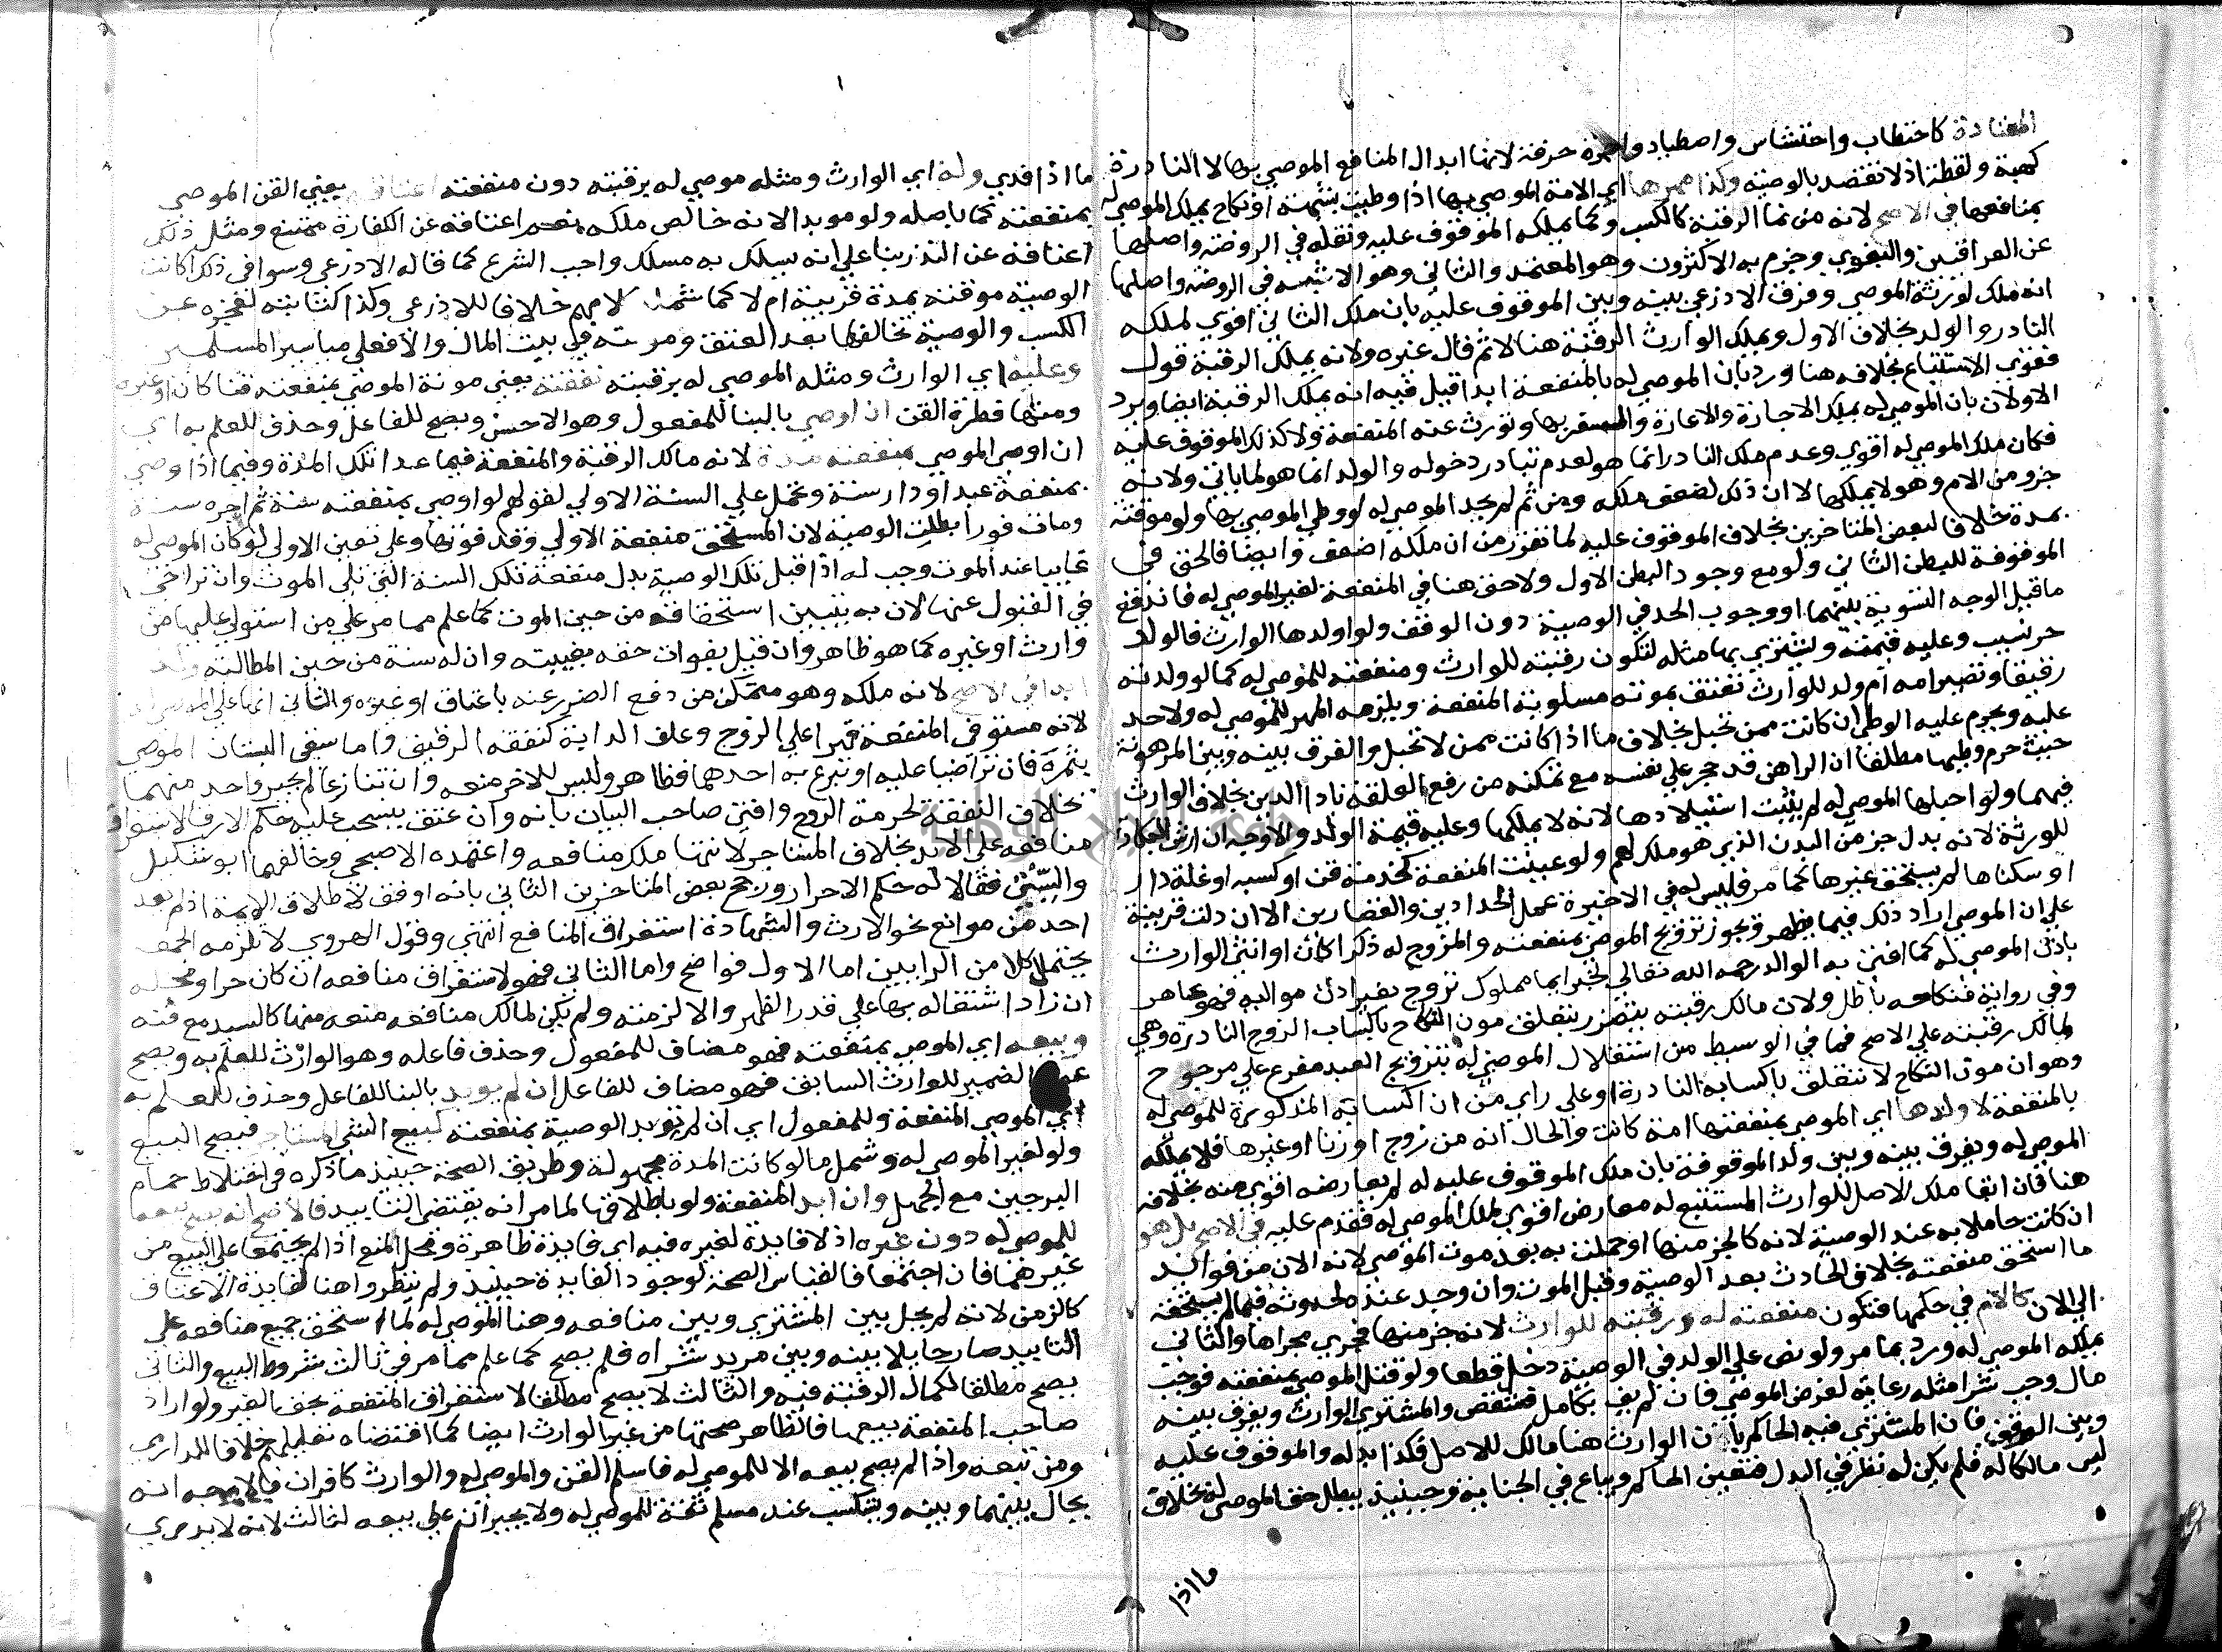 المعتادة كاحتطاب واحتشاش واصطياد واجرة حرفة لانها ابدال المنافع الموصي بها لا النادرة
كهبة ولقطة اذ لا تقصد بالوصية وكذا مهرها اي الامة الموصي بها اذا وطيت بشبهة او نكاح يملكه الموصي له
بمنافعها في الاصح لانه من نما الرقبة كالكسب وكما يملكه الموقوف عليه ونقله في الروضة واصلها
عن العراقيين والبغوي وجزم به الاكثرون وهو المعتمد والثاني وهو الاشبه في الروضة واصلها
انه ملك لورثة الموصي وفرق الاذرعي بينه وبين الموقوف عليه بان ملك الثاني اقوي لملكه
النادر والولد بخلاف الاول ويملك الوارث الرقبة هنا لا ثم قال غيره ولانه يملك الرقبة قول
فقوي الاستتباع بخلافه هنا ورد بان الموصي له بالمنفعة ابدا قيل فيه انه يملك الرقبة ايضا ويرد
الاولان بان الموصي له يملك الاجارة والاعارة والسفر بها وتورث عنه المنفعة ولا كذلك الموقوف عليه
فكان ملك الموصي له اقوي وعدم ملك النادر انما هو لعدم تبادر دخوله والولد انما هو لما ياتي ولانه
جزو من الام وهو لا يملكها لا ان ذلك لضعف ملكه ومن ثم لم يحد الموصي له لو وطي الموصي بها ولو موقتة
بمدة خلافا لبعض المتاخرين بخلاف الموقوف عليه لما تقرر من ان ملكه اضعف وايضا فالحق في
الموقوفة للبطن الثاني ولو مع وجود البطن الاول ولا حق هنا في المنفعة لغير الموصي له فاندفع
ما قيل الوجه التسوية بينهما او وجوب الحد في الوصية دون الوقف ولو اولدها الوارث فالولد
حر نسيب وعليه قيمته ويشتري بها مثله لتكون رقبته للوارث ومنفعته للموصي له كما لو ولدته
رقيقا وتصير امه ام ولد للوارث تعتق بموته مسلوبة المنفعة ويلزمه المهر للموصي له ولا حد
عليه ويحرم عليه الوطي ان كانت ممن تحبل بخلاف ما اذا كانت ممن لا تحبل والفرق بينه وبين المرهونة
حيث حرم وطيها مطلقا ان الراهن قد حجر علي نفسه مع تمكنه من رفع العلقة بادا الدين بخلاف الوارث
فيهما ولو احبلها الموصي له لم يثبت استيلادها لانه لا يملكها وعليه قيمة الولد والاوجه ان ارش البكارة
للورثة لانه بدل جز من البدن الذي هو ملك لهم ولو عينت المنفعة كخدمة قن او كسبه او غلة دار
او سكناها لم يستحق غيرها كما مر فليس له في الاخيرة عمل الحدادين والقصارين الا ان دلت قرينة
علي ان الموصي اراد ذلك فيما يظهر ويجوز تزويج الموصي بمنفعته والمزوج له ذكرا كان او انثي الوارث
باذن الموصي له كما افتي به الوالد رحمه الله تعالي لخبر ايما مملوك تزوج بغير اذن مواليه فهو عاهر
وفي رواية فنكاحه باطل ولان مالك رقبته يتضرر بتعلق مون النكاح باكساب الزوج النادرة وهي
لمالك رقبته علي الاصح فما في الوسيط من استقلال الموصي له بتزويج العبد مفرع علي مرجوح
وهو ان مون النكاح لا تتعلق باكسابه النادرة او علي راي من ان اكسابه المذكورة للموصي له
بالمنفعة لا ولدها اي الموصي بمنفعتها امة كانت والحال انه من زوج او زنا او غيرها فلا يملكه
الموصي له ويفرق بينه وبين ولد الموقوفة بان ملك الموقوف عليه له لم يعارضه اقوي منه بخلافه
هنا فان ابقا ملك الاصل للوارث المستتبع له معارض اقوي لملك الموصي له فقدم عليه في الاصح بل هو
ان كانت حاملا به عند الوصية لانه كالجز منها او حملت به بعد موت الموصي لانه الان من فوايد
ما استحق منفعته بخلاف الحادث بعد الوصية وقبل الموت وان وجد عنده لحدوثه فيما لم يستحقه
الي الان كالام في حكمها فتكون منفعته له ورقبته للوارث لانه جز منها فجري مجراها والثاني
يملكه الموصي له ورد بما مر ولو نص علي الولد في الوصية دخل قطعا ولو قتل الموصي بمنفعته فوجب
مال وجب شرا مثله رعاية لغرض الموصي فان لم يف بكامل فشقص والمشتري الوارث ويفرق بينه
وبين الوقف فان المشتري فيه الحاكم بان الوارث هنا مالك للاصل فكذا بدله والموقوف عليه
ليس مالكا له فلم يكن له نظر في البدل فتعين الحاكم ويباع في الجناية وحينيذ يبطل حق الموصي له بخلاف
ما اذا
ما اذا فدي وله اي الوارث ومثله موصي له برقبته دون منفعته اعتاقه يعني القن الموصي
بمنفعته كما باصله ولو موبدا لانه خالص ملكه نعم اعتاقه عن الكفارة ممتنع ومثل ذلك
اعتاقه عن النذر بنا علي انه يسلك به مسلك واجب الشرع كما قاله الاذرعي وسوا في ذلك اكانت
الوصية موقتة بمدة قريبة ام لا كما شمله كلامهم خلافا للاذرعي وكذا كتابته لعجزه عن
الكسب والوصية بحالها بعد العتق ومونته في بيت المال والا فعلي مياسير المسلمين
وعليه اي الوارث ومثله الموصي له برقبته نفقته يعني مونة الموصي بمنفعته قنا كان او غيره
ومنها فطرة القن ان اوصي بالبنا للمفعول وهو الاحسن ويصح للفاعل وحذف للعلم به اي
ان اوصي الموصي بمنفعته مدة لانه مالك الرقبة والمنفعة فيما عدا تلك المدة وفيما اذا وصي
بمنفعة عبد او دار سنة وتحمل علي السنة الاولي لقولهم لو اوصي بمنفعته سنة ثم اجره سنة
ومات فورا بطلت الوصية لان المستحق منفعة الاولي وقد فوتها وعلي تعين الاولي لو كان الموصي له
غايبا عند الموت وجب له اذا قبل تلك الوصية بدل منفعة تلك السنة التي تلي الموت وان تراخي
في القبول عنها لان به يتبين استحقاقه من حين الموت كما علم مما مر علي من استولي عليها من
وارث او غيره كما هو ظاهر وان قيل بفوات حقه بغيبته وان له سنة من حين المطالبة وكذا
ابدا في الاصح لانه ملكه وهو متمكن من دفع الضرر عنه باعتاق او غيره والثاني انها علي الموصي له
لانه مستوفي المنفعة فهو اعلي الزوج وعلف الداية كنفقة الرقيق واما سقي البستان الموصي
بثمره فان تراضيا عليه او تبرع به احدهما فظاهر وليس للاخر منعه وان تنازعا لم يجبر واحد منهما
بخلاف النفقة لحرمة الروح وافتي صاحب البيان بانه وان عتق ينسحب عليه حكم الارقا لاستغراق
منافعه علي الابد بخلاف المستاجر لانتها ملك منافعه واعتمده الاصبحي وخالفهما ابو شكيل
والبستي فقالا له حكم الاحرار ورجح بعض المتاخرين الثاني بانه اوفق لاطلاق الايمة اذ لم يعد
احد من موانع نحو الارث والشهادة استغراق المنافع انتهي وقول الهروي لا يلزمه الجمعة
يحتمل كلا من الرايين اما الاول فواضح واما الثاني فهو لاستغراق منافعه ان كان حرا ومحله
ان زاد اشتغاله بها علي قدر الظهر والا لزمته ولم يكن لمالك منافعه منعه منها كالسيد مع قنه
وبيعه اي الموصي بمنفعته فهو مضاف للمفعول وحذف فاعله وهو الوارث للعلم به ويصح
الضمير للوارث السابق فهو مضاف للفاعل ان لم يوبد بالبنا للفاعل وحذف للعلم به
اي الموصي المنفعة وللمفعول اي ان لم توبد الوصية بمنفعته كبيع الشي المستاجر فيصح البيع
ولو لغير الموصي له وشمل ما لو كانت المدة مجهولة وطريق الصحة حينيذ ما ذكره في اختلاط حمام
البرجين مع الجهل وان ابد المنفعة ولو باطلاقها لما مر انه يقتضي التابيد فالاصح انه يصح بيعه
للموصي له دون غيره اذ لا فايدة لغيره فيه اي فايدة ظاهرة ومحل المنع اذا لم يجتمعا علي البيع من
غيرهما فان اجتمعا فالقياس الصحة لوجود الفايدة حينيذ ولم ينظروا هنا لفايدة الاعتاق
كالزمن لانه لم يحل بين المشتري وبين منافعه وهنا الموصي له لما استحق جميع منافعه علي
التابيد صار حايلا بينه وبين مريد شراه فلم يصح كما علم مما مر في ثالث شروط البيع والثاني
يصح مطلقا لكمال الرقبة فيه والثالث لا يصح مطلقا لاستغراق المنفعة بحق الغير ولو اراد
صاحب المنفعة بيعها فالظاهر صحتها من غير الوارث ايضا كما اقتضاه تعليلهم خلافا للدارمي
ومن تبعه واذا لم يصح بيعه الا للموصي له فاسلم القن والموصي له والوارث كافران فالاوجه انه
يحال بينهما وبينه ويتكسب عند مسلم ثقة للموصي له ولا يجبران علي بيعه لثالث لانه لا يدري